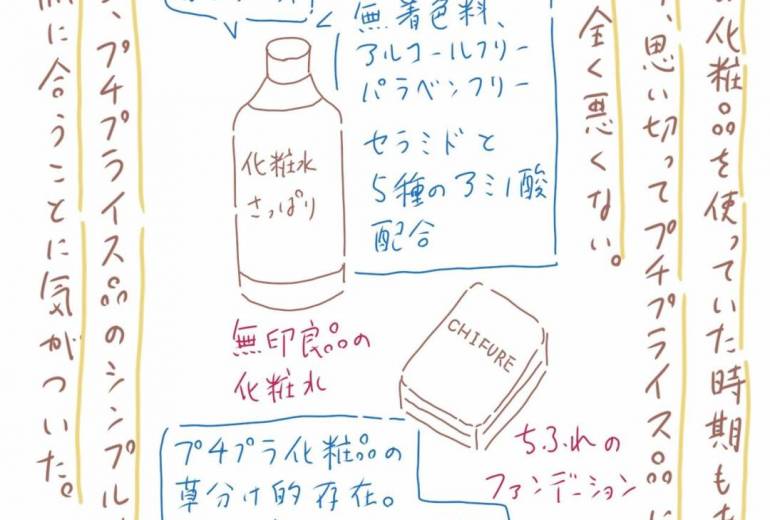 化粧品を使っていた時期も
思い切ってプチプライス品に
全く悪くない。
無着色料、
アルコールフリー
パラベンフリー
セラミドと
5種のアミノ酸
配合
化粧水
さっぱり
無印良品の
化粧水
CHIFURE
ちふれの
ファンデーション
プチプラ化粧品の
草分け的存在。
プチプライス品のシンプル
に合うことに気がついた。